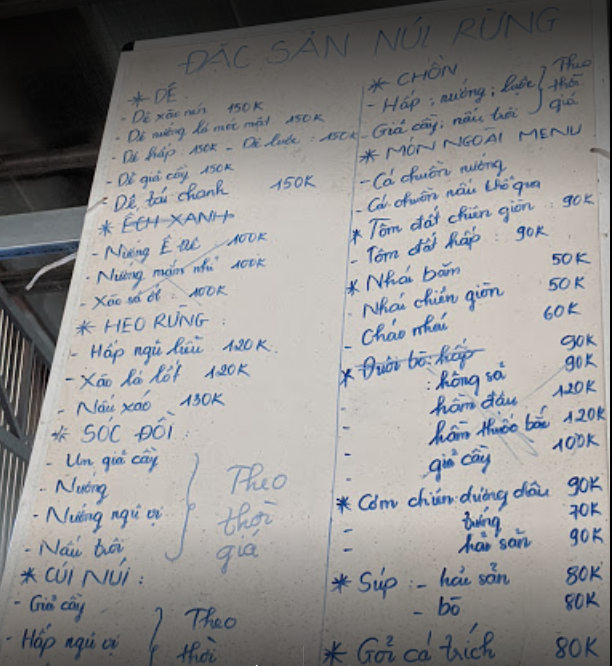 ĐẶC SẢN NÚI RỪNG
* DÊ
- Dê xào mìn 150K
- Dê nướng lá móc mật 150K
- Dê hấp 150K - Dê luộc : 150K
- Dê giả cầy 150K
- Dê tái chanh 150K
* ẾCH XANH
- Nướng Ê Đê 100K
- Nướng mắm nhĩ 100K
- Xào sả ớt : 100K
* HEO RỪNG :
- Hấp ngũ liễu 120K
- Xào lá lốt 120K
- Nấu xáo 130K
* SÓC ĐỒI :
- Um giả cầy
- Nướng
- Nướng ngũ vị
- Nấu trôi
Theo
thời
giá
* CÚI NÚI :
- Giả cầy
- Hấp ngũ vị
Theo
thời
* CHỒN
- Hấp ; nướng ; luộc
- Giả cầy ; nấu trôi
Theo
thời
giá
* MÓN NGOÀI MENU
- Cá chuồn nướng
- Cá chuồn nấu khổ qua
* Tôm đất chiên giòn : 90K
- Tôm đất hấp : 90K
* Nhái bằm 50K
- Nhái chiên giòn 50K
- Cháo nhái 60K
* Đuôi bò : hấp 90K
- : hông sả 90K
- hầm đậu 120K
- hầm thuốc bắc 120K
- giả cầy 100K
* Cơm chiên : dương châu 90K
- trứng 70K
- hải sản 90K
* Súp : - hải sản 80K
- bò 80K
* Gỏi cá trích 80K